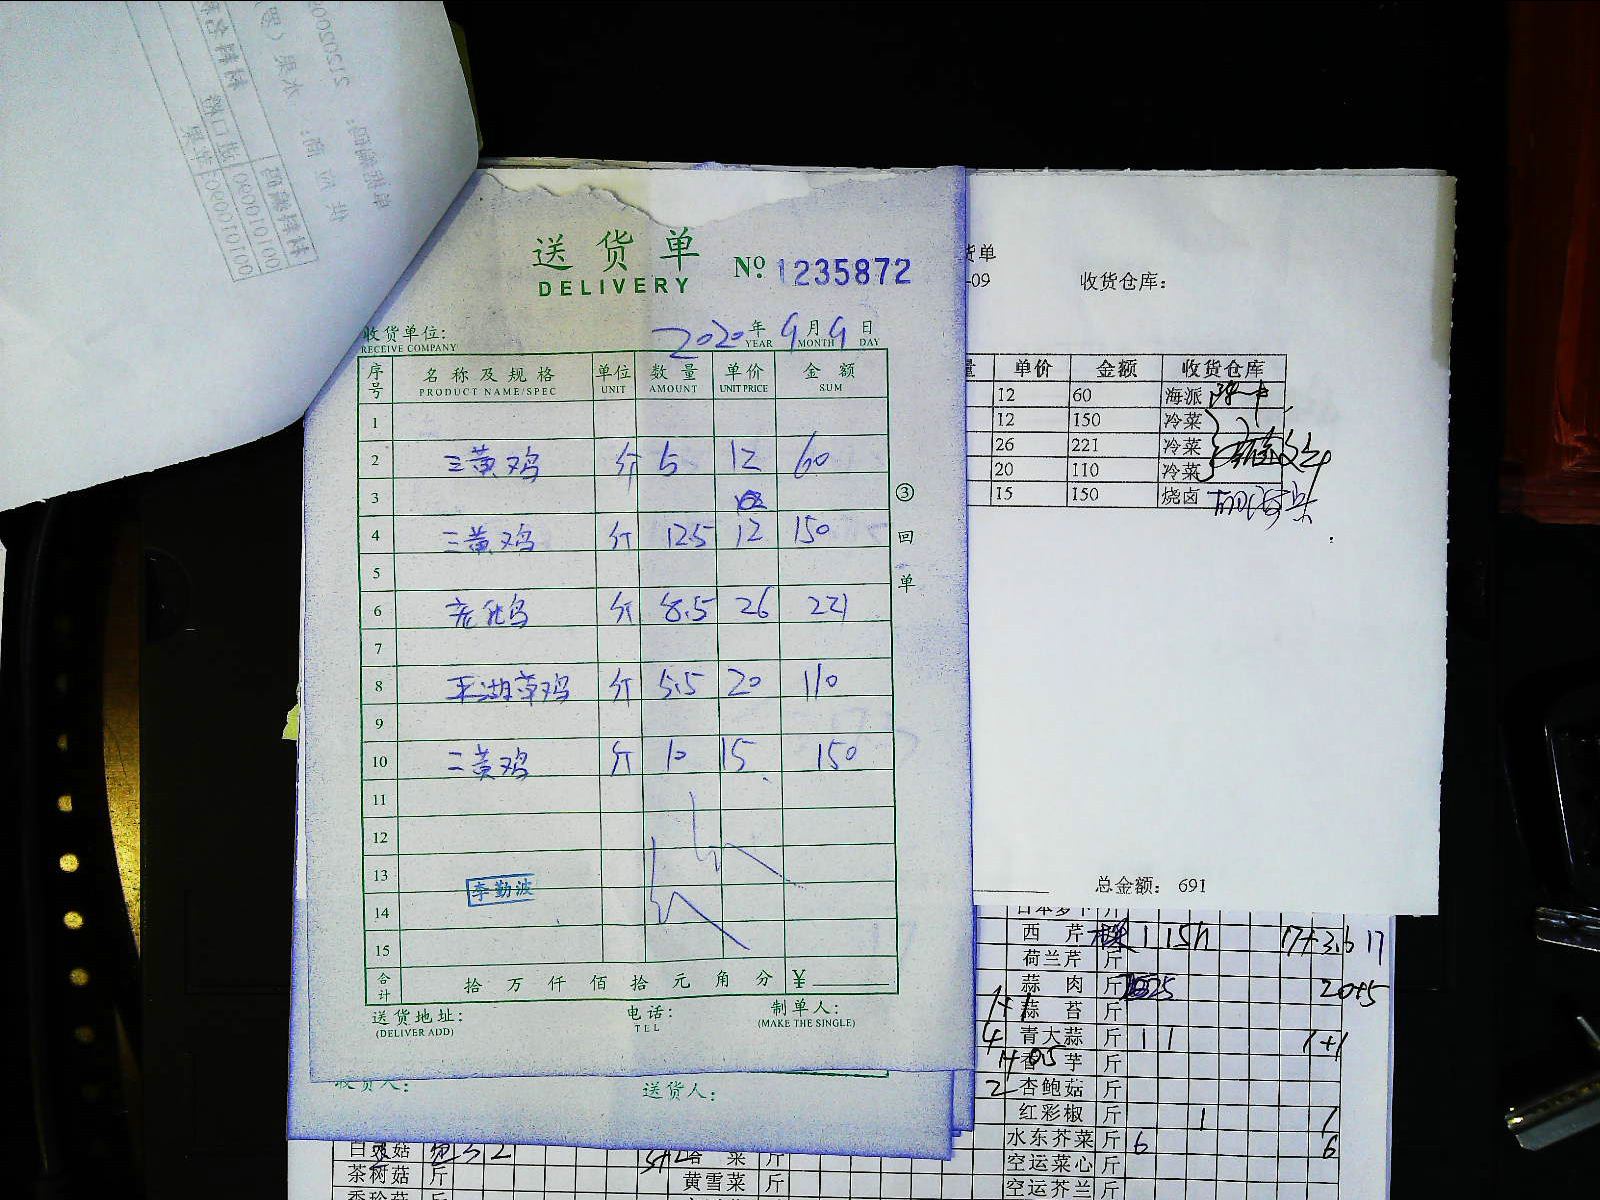 送货单
DELIVERY
No. 1235872
收货单位:
RECEIVE COMPANY
2020年9月9日
YEAR MONTH DAY
序号 名称及规格 单位 数量 单价 金额
PRODUCT NAME/SPEC UNIT AMOUNT UNIT PRICE SUM
1
2 三黄鸡 斤 5 12 60
3
4 三黄鸡 斤 12.5 12 150
5
6 斤 8.5 26 221
7
8 平湖草鸡 斤 5.5 20 110
9
10 三黄鸡 斤 10 15 150
11
12
13
李勤波
14
15
合计 拾万仟佰拾元角分 ¥
送货地址: 电话: 制单人:
(DELIVER ADD) TEL (MAKE THE SINGLE)
③回单
收货人: 送货人:
货单
-09 收货仓库:
量 单价 金额 收货仓库
12 60 海派
12 150 冷菜
26 221 冷菜
20 110 冷菜
15 150 烧卤
总金额: 691
日本萝卜 斤
西芹 1 17+3.6 17
荷兰芹 斤
蒜肉 斤 20+5
蒜苔 斤
4 青大蒜 斤 1 1 1+1
香芋 斤
2 杏鲍菇 斤
红彩椒 斤 1 1
水东芥菜 斤 6 6
空运菜心 斤
空运芥兰 斤
茶树菇 斤
黄雪菜 斤